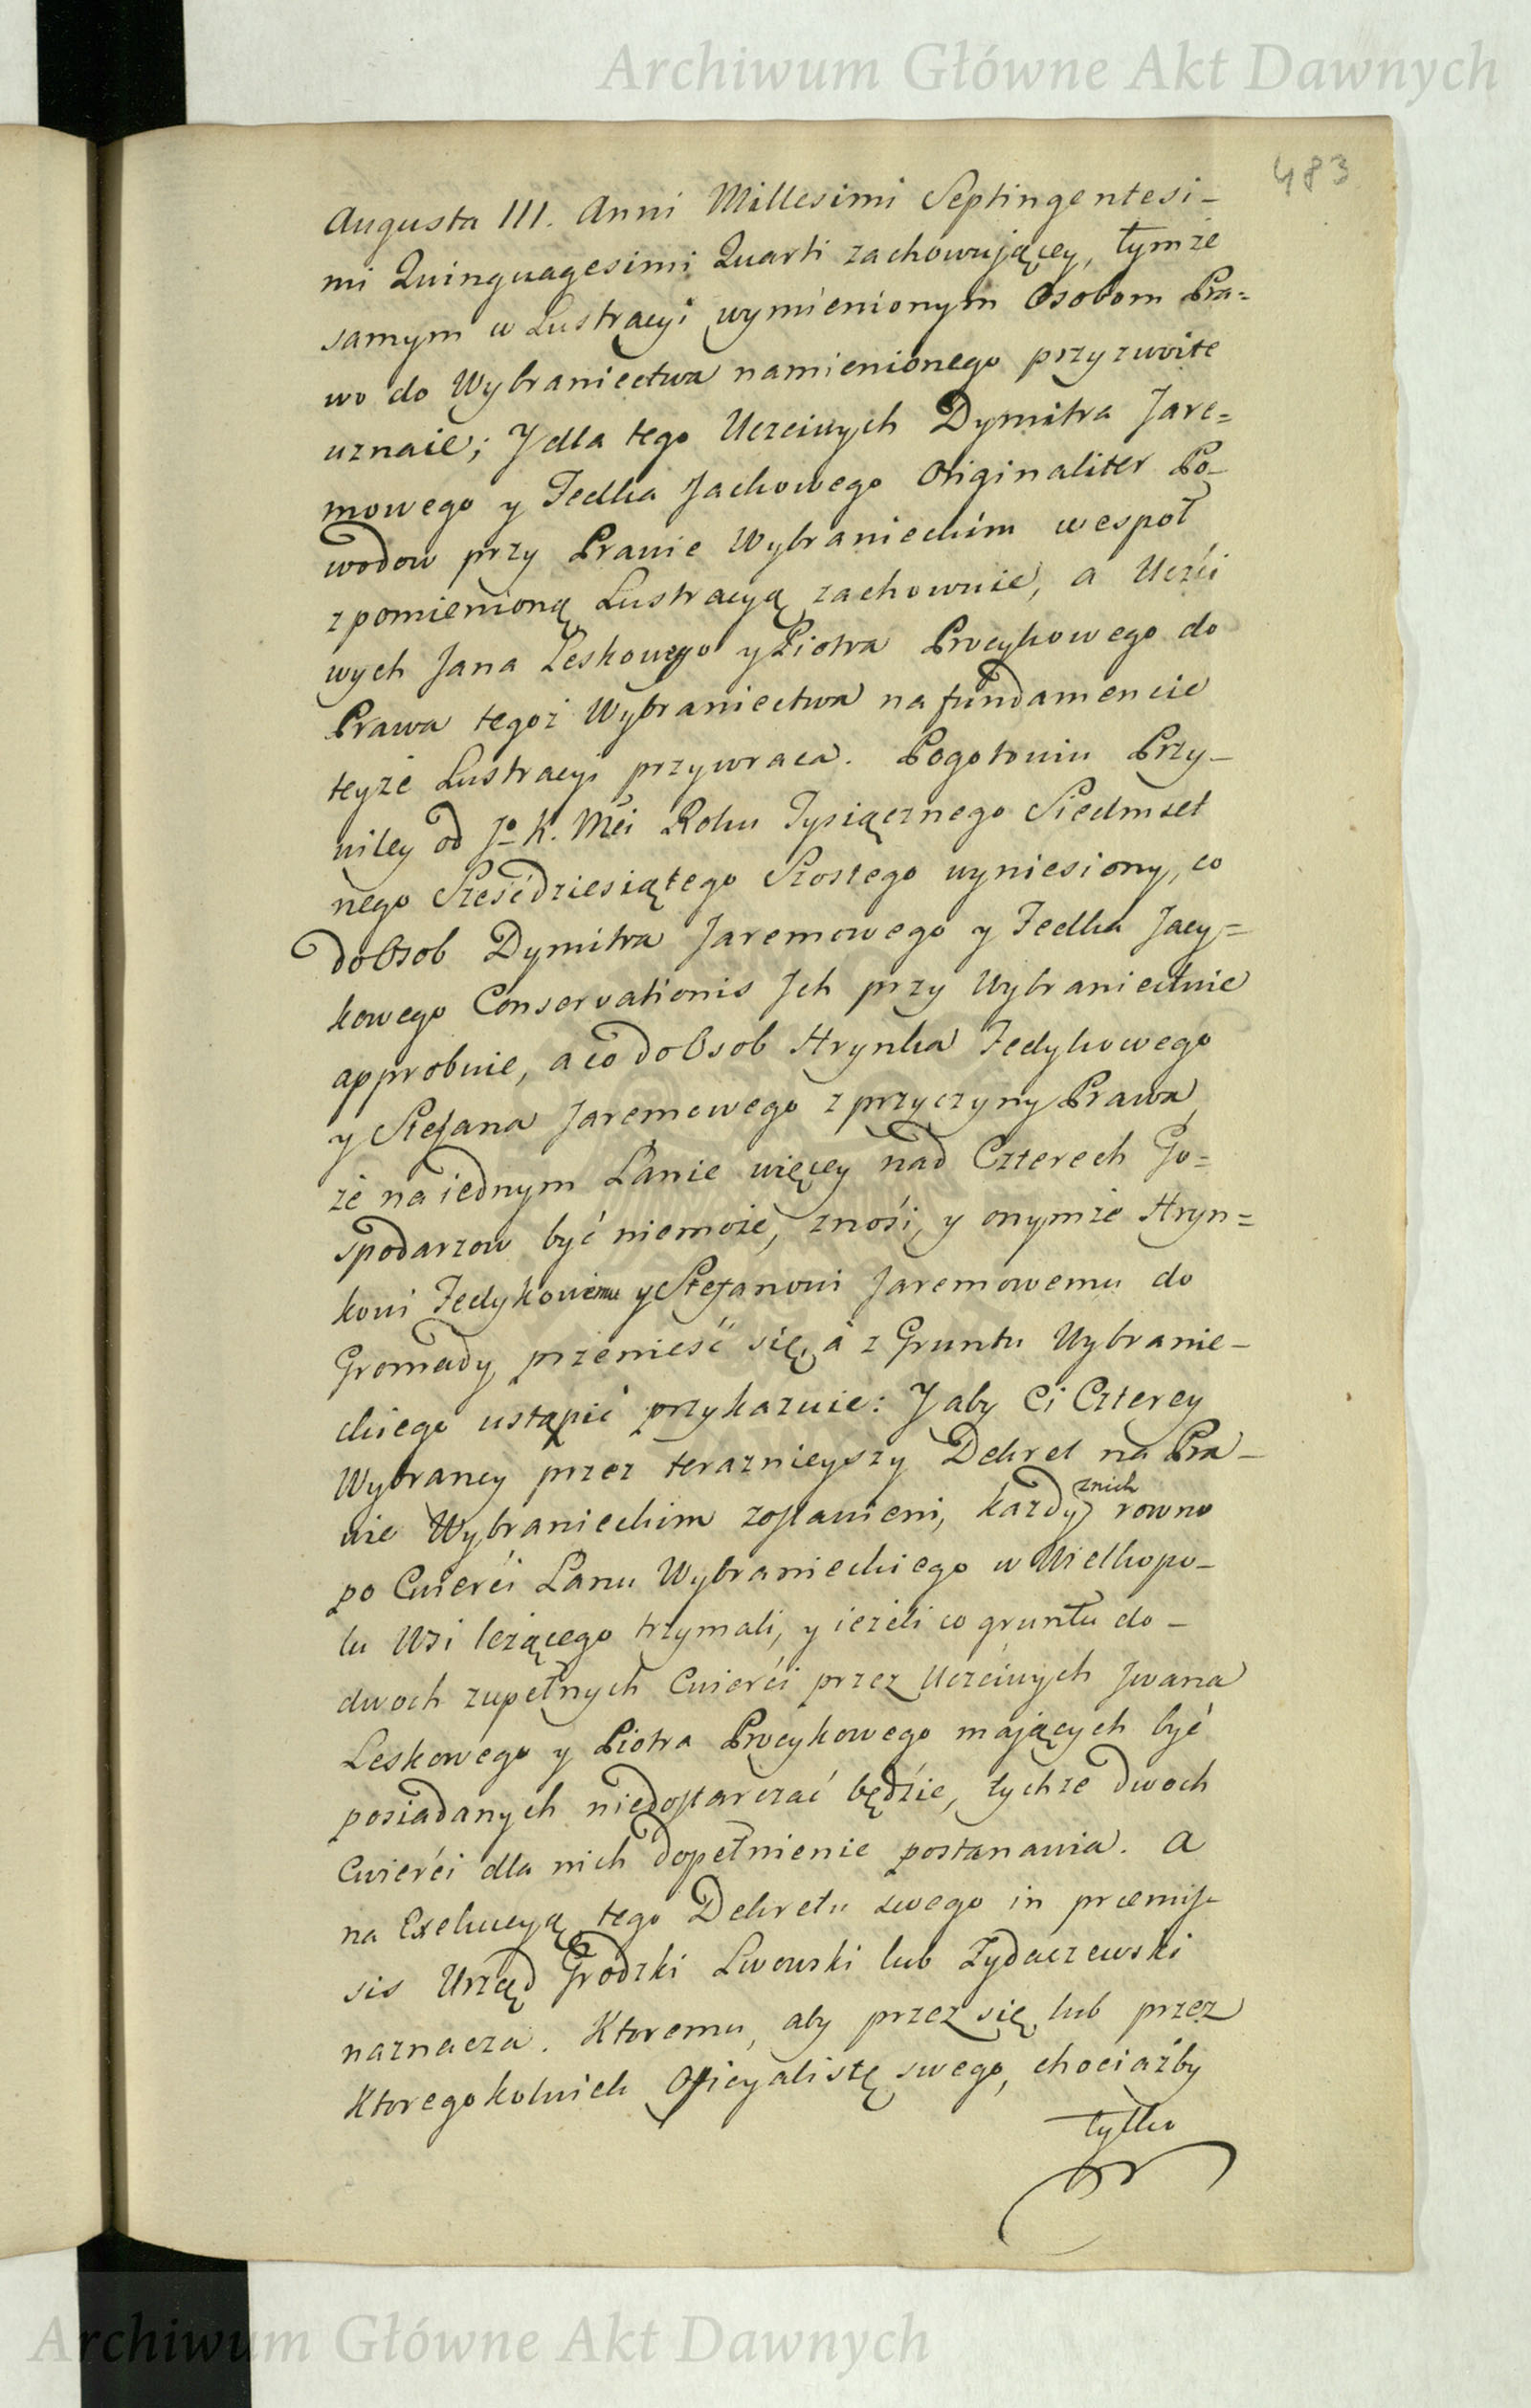 Archiwum Główne Akt Dawnych
483
Augusta III. Anni Millesimi Septingentesi-
mi Quinquagesimi Quarti zachowującey, tymże
samym w Lustracyi wymienionym Osobom Pra=
wo do Wybraniectwa namienionego przyzwoite
uznaie; Y dla tego Uczciwych Dymitra Jare=
mowego y Fedka Jackowego Originaliter Po-
wodow przy Prawie Wybranieckim wespoł
z pomienioną Lustracyą zachownie, a Uczći
wych Jana Leskowego y Piotra Procykowego do
Prawa tegoż Wybraniectwa na fundamencie
teyże Lustracyi przywraca. Pogotowiu Przy-
wiley od Jo K. Mći Roku Tysiącznego Siedmset
nego Sześćdziesiątego Szostego wyniesiony, co
do Osob Dymitra Jaremowego y Fedka Jacy=
kowego Conservationis Jch przy Wybraniectwie
approbuie, a co do Osob Hrynka Fedykowego
y Stefana Jaremowego z przyczyny Prawa,
że na iednym Łanie więcey nad Czterech Go=
spodarzow być niemoże, znośi, y onymże Hryn=
kowi Fedykowemu y Stefanowi Jaremowemu do
Gromady przenieść się, a z Gruntu Wybranie-
ckiego ustąpić przykazuie: Y aby Ci Czterey
Wybrańcy przez teraznieyszy Dekret na Pra-
wie Wybranieckim zostawieni, każdy z nich rowno
po Cwierći Łanu Wybranieckiego w Wielkopo-
lu Wsi leżącego trzymali, y ieżeli co gruntu do-
dwoch zupełnych Cwierći przez Uczciwych Jwana
Leskowego y Piotra Procykowego mających być
posiadanych niedostarczać będzie, tychże dwoch
Cwierći dla nich dopełnienie postanawia. A
na Exekucyą tego Dekretu swego in præmis-
sis Urząd Grodzki Lwowski lub Zydaczewski
naznacza. Ktoremu, aby przez się lub przez
Ktoregokolwiek Oficyalistę swego, chociażby
tylko
Archiwum Główne Akt Dawnych